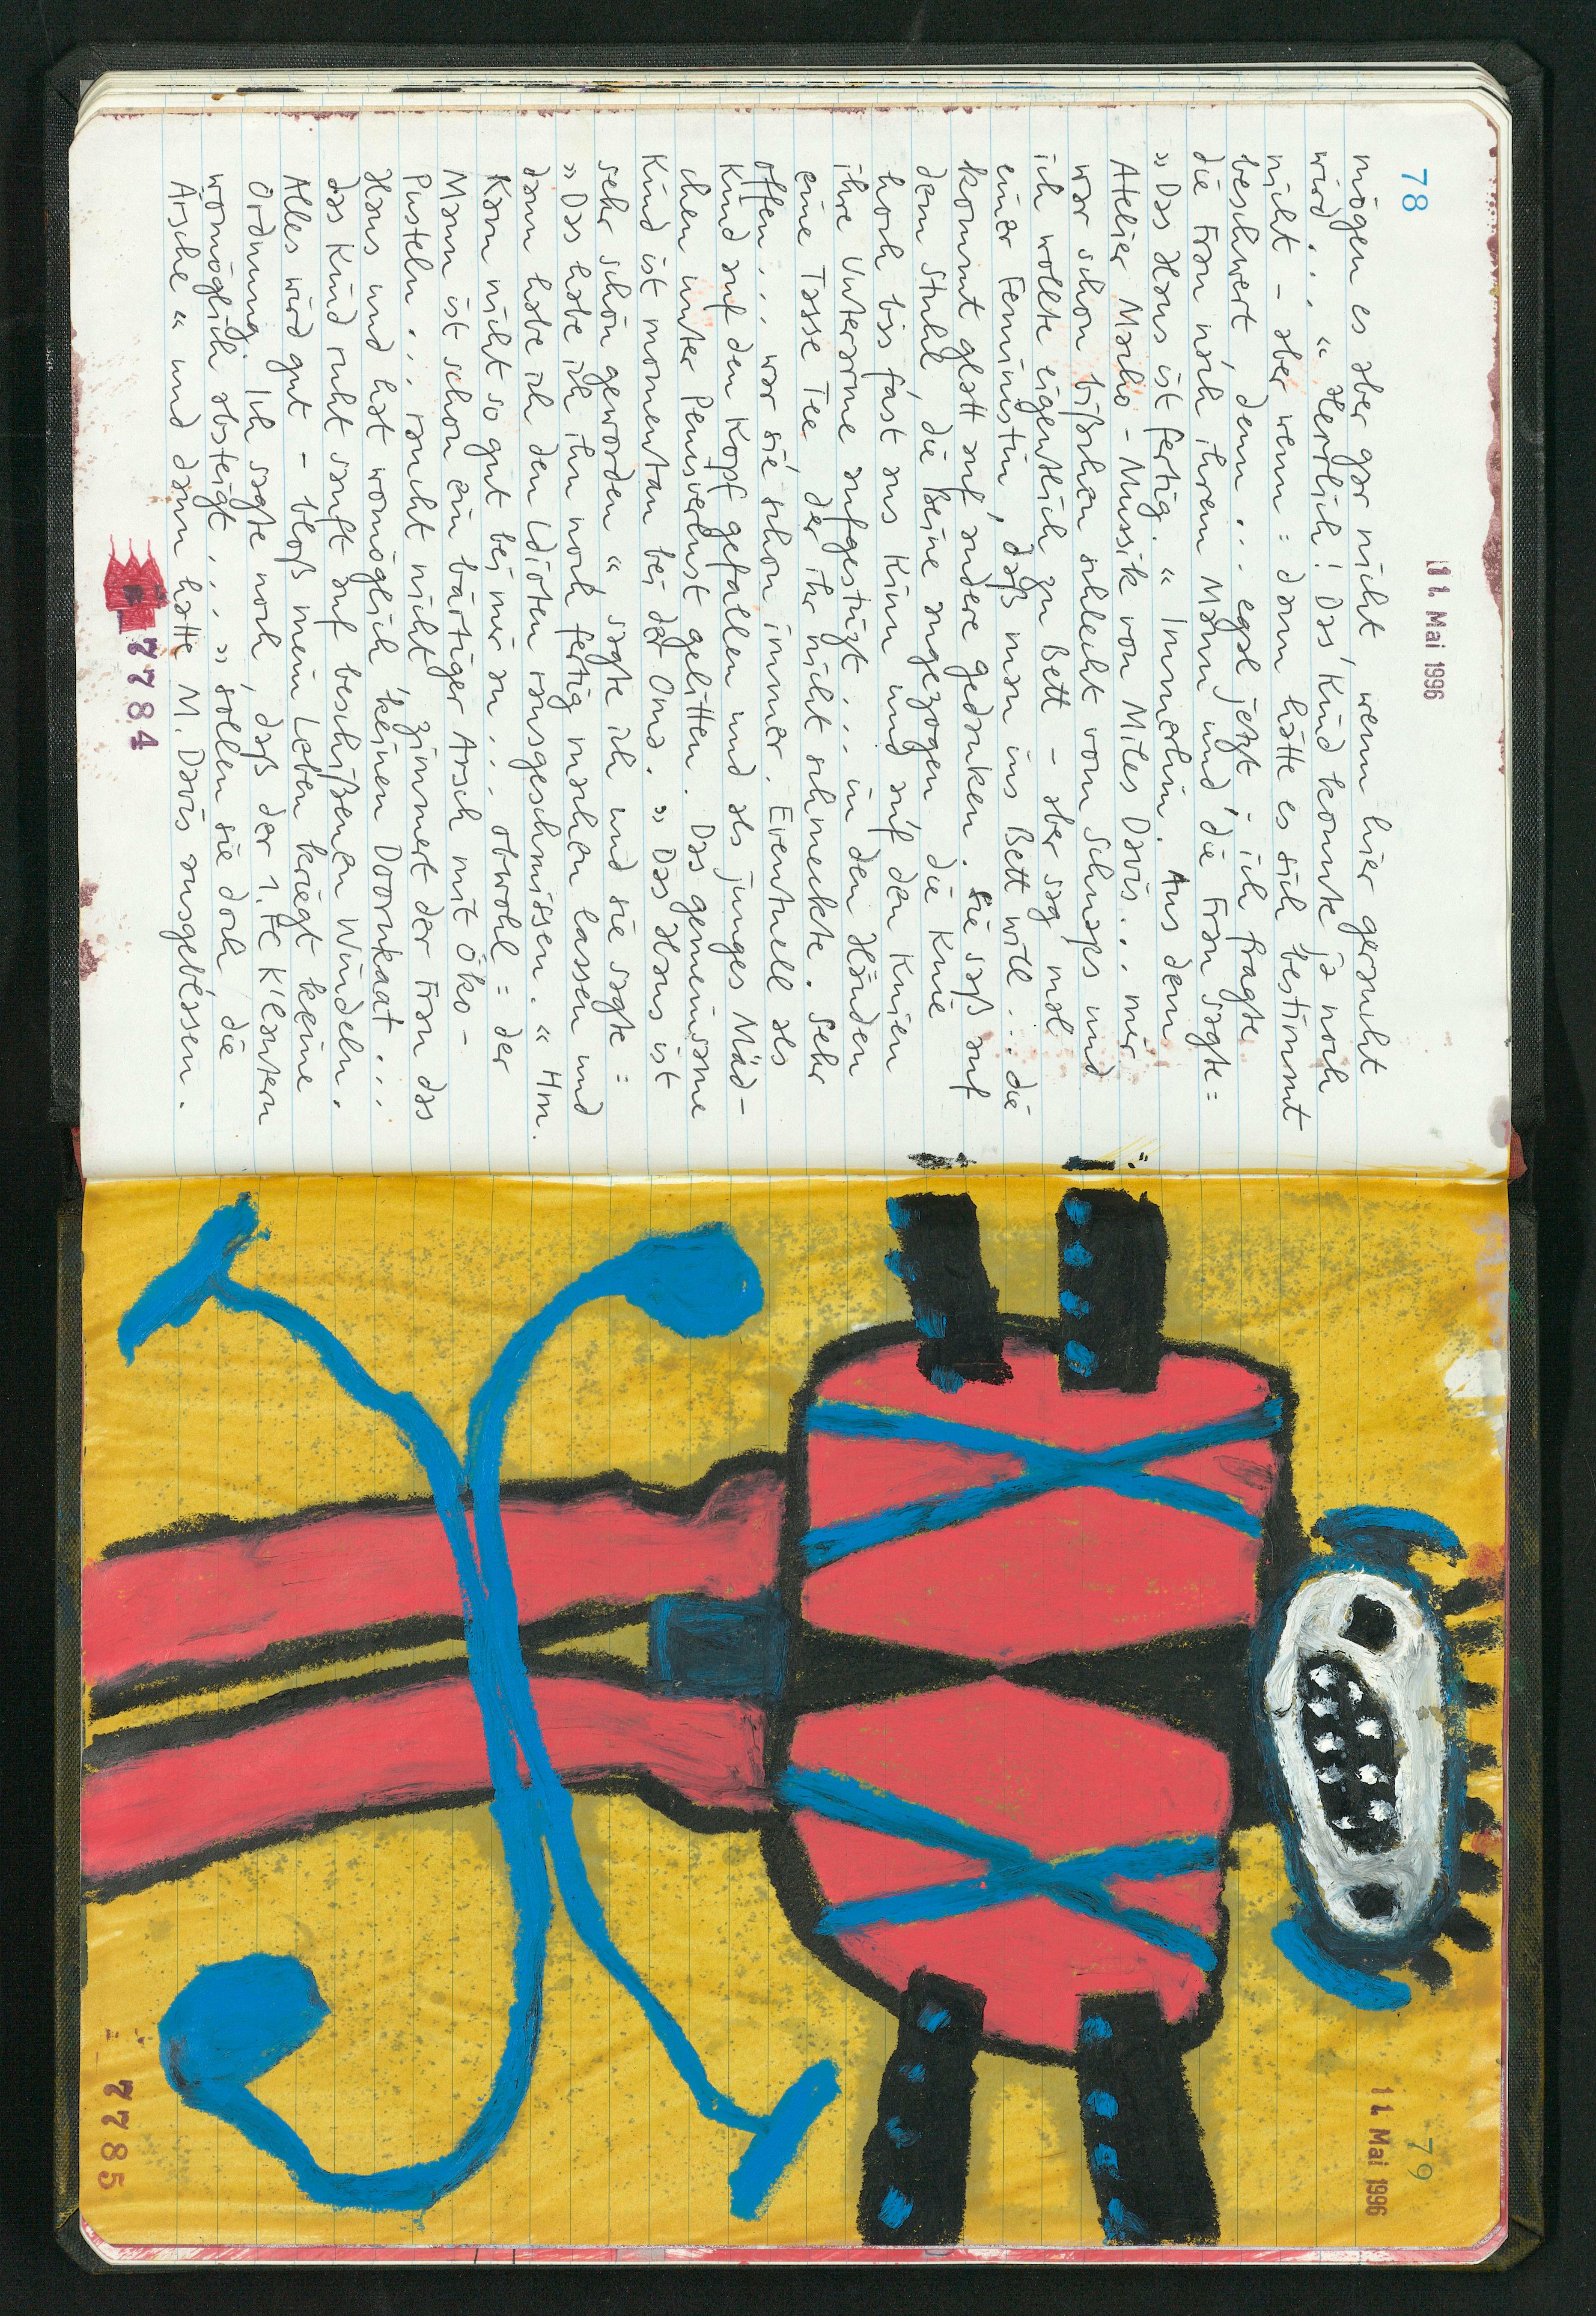 78
11. Mai 1996
mögen es aber gar nicht, wenn hier geraucht
wird ... “ Herrlich! Das Kind konnte ja noch
nicht – aber wenn: dann hätte es sich bestimmt
beschwert, denn ... egal jetzt – ich fragte
die Frau nach ihrem Mann und die Frau sagte =
» Das Haus ist fertig. “ Immerhin. Aus dem
Atelier Macho-Mussik von Miles Davis ... mir
war schon bißchen schlecht vom Schnaps und
ich wollte eigentlich zu Bett – aber sag mal
einer Feministin, daß man ins Bett will ... die
kommt glatt auf andere gedanken. Sie saß auf
dem Stuhl, die Beine angezogen, die Knie
hoch bis fast ans Kinn und auf den Knien
ihre Unterarme aufgestüzt ... in den Händen
eine Tasse Tee, der ihr nicht schmeckte. Sehr
offen ... war sie schon immer. Eventuell als
Kind auf den Kopf gefallen und als junges Mäd-
chen unter Penisverlust gelitten. Das gemeinsame
Kind ist momentan bei der Oma. » Das Haus ist
sehr schön geworden “, sagte ich und sie sagte =
» Das habe ich ihn noch fertig machen lassen und
dann habe ich den Idioten rausgeschmissen. “ Hm.
Kam nicht so gut bei mir an ... obwohl = der
Mann ist schon ein bärtiger Arsch mit Öko-
Pusteln ... raucht nicht, zimmert der Frau das
Haus und hat womöglich keinen Doornkaat ...
das Kind ruht sanft auf beschißenen Windeln.
Alles wird gut – bloß mein Leben kriegt keine
Ordnung. Ich sagte noch, daß der 1. FC K'lautern
womöglich absteigt ... » sollen sie doch, die
Ärsche “ und dann hatte M. Davis ausgeblasen.
7784
79
11. Mai 1996
7785